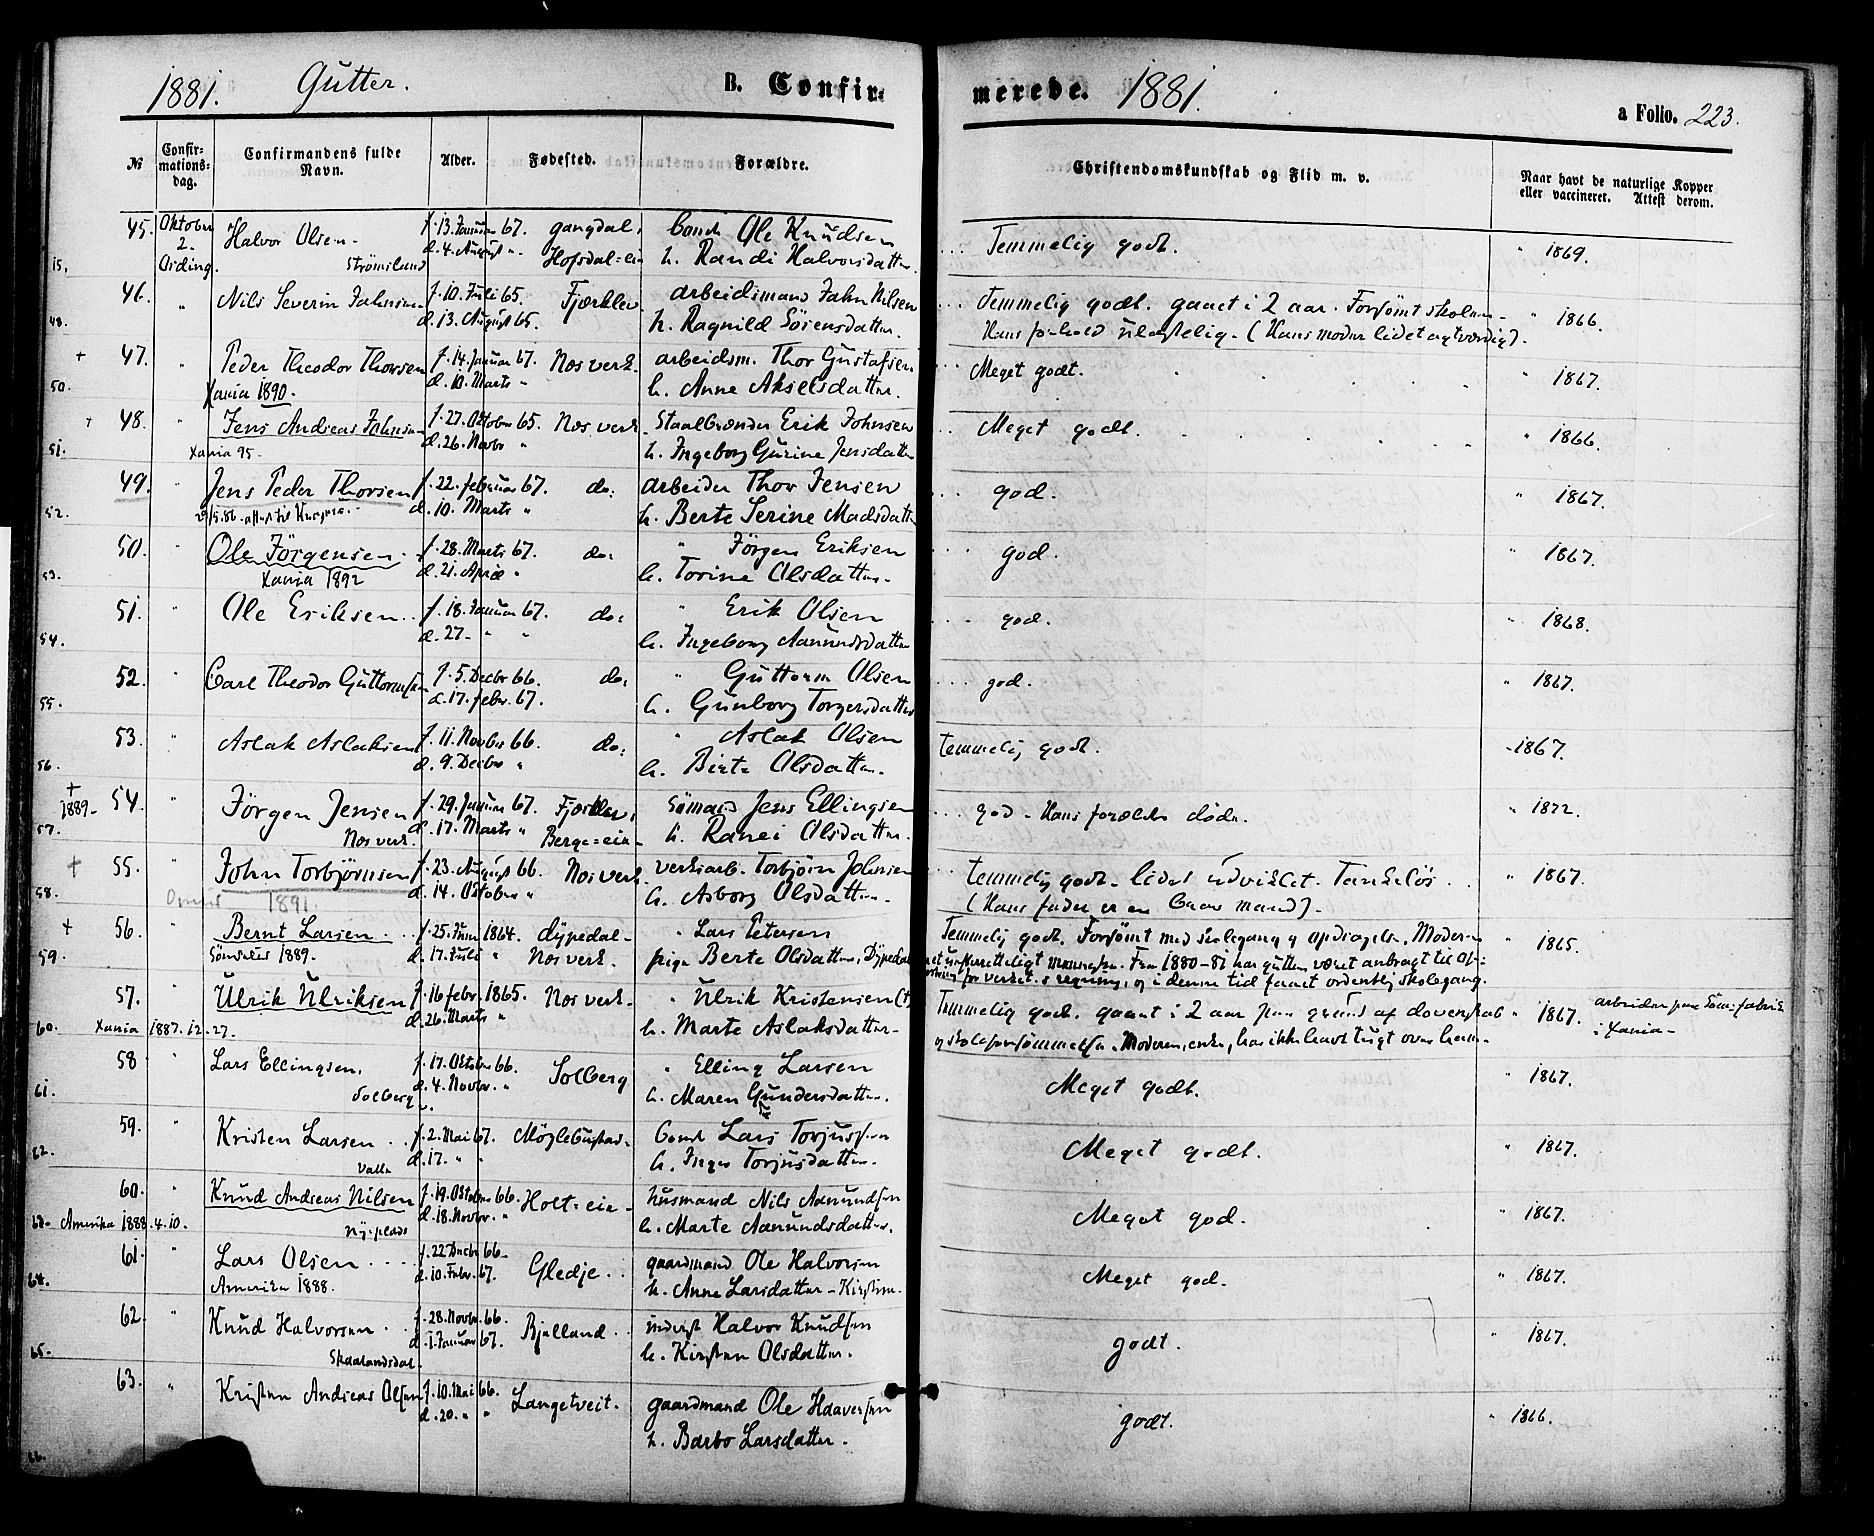 1881. Gutter. B. Confir-
merede. 1881.
a Folio. 223.
№
Confir-
mations-
dag.
Confirmandens fulde
Navn.
Alder.
Fødested.
Forældre.
Christendomskundskab og Flid m. v.
Naar havt de naturlige Kopper
eller vaccineret. Attest derom.
45. Oktober Halvor Olsen. f. 13. Januar 67. gangdal, bonde Ole Knudsen Temmelig godt. " 1869.
2. d. 4. August ". Hofsdal-eie h. Randi Halvorsdatter
15. Strömslund
46. " Nils Severin Jahnsen f. 10. Juli 65. Fjærklev arbeidsmand Jahn Nilsen Temmelig godt. gaaet i 2 aar. Forsømt skolen - " 1866.
48. d. 13. August 65. h. Ragnild Sörensdatter Hans forhold ulastelig. (Hans moder lidet agtværdig).
+ 47. " Peder Theodor Thorsen f. 14. Januar 67. Nes verk. arbeidsm. Thor Gustafsen Meget godt. " 1867.
50. Xania 1890. d. 10. Marts " h. Anne Akselsdatter.
+ 48. " Jens Andreas Johnsen f. 27. Oktober 65. Nes verk Staalbrænder Erik Johnsen Meget godt. " 1866.
51. Xania 95. d. 26. Novbr " h. Ingeborg Gurine Jensdatter
49. " Jens Peder Thorsen f. 22. februar 67. do: arbeider Thor Jensen god. " 1867.
52. d. 10. Marts " h. Berte Serine Madsdatter
50. " Ole Jörgensen. f. 28. Marts 67. do: " Jörgen Eriksen god. " 1867.
53. Xania 1892 d. 21. April " h. Torine Olsdatter.
51. " Ole Eriksen f. 18. Januar 67. do: " Erik Olsen god. " 1868.
54. d. 27. " " h. Ingeborg Aanundsdatter
52. " Carl Theodor Guttormsen f. 5. Decbr 66. do: " Guttorm Olsen god. " 1867.
55. d. 17. febr. 67. h. Gunborg Torgersdatter
53. " Aslak Aslaksen f. 11. Novbr 66. do: " Aslak Olsen temmelig godt. " 1867.
56. d. 9. Decbr " h. Berte Olsdatter.
+
1889. 54. " Jörgen Jensen f. 29. Januar 67. Fjærklev, Sömand Jens Ellingsen god. Hans forældre døde. " 1872.
57. Nes verk. d. 17. Marts " Berge-eie h. Ranei Olsdatter.
+ 55. " John Torbjörnsen f. 23. August 66. Nes verk verksarb. Torbjörn Johnsen temmelig godt. lidet udviklet. Tankeløs. " 1867.
58. 1891. d. 14. Oktober " h. Asborg Olsdatter. (Hans fader er en brav mand).
+ 56. " Bernt Larsen. f. 25. Juni 1864. dypedal - " Lars Petersen Temmelig godt. Forsømt med skolegang og opdragelse. Moderen " 1865.
59. Søndeled 1889. d. 17. Juli " Nes verk. pige Berte Olsdatter, Dypedal et uefterretteligt menneske. Fra 1880-81 har gutten været anbragt til
for verket.s regning, og i denne tid faaet ordentlig skolegang.
57. " Ulrik Ulriksen f. 16 febr. 1865. Nes verk. " Ulrik Kristensen (†) Temmelig godt. gaaet i 2 aar paa grund af dovenskab " 1867. arbeider paa Søm-fabrik
60. Xania 1887.12.27. d. 26. Marts " h. Marte Aslaksdatter - og skoleforsømmelse. Moderen, enke, har ikke havt tugt over ham. i Xania -
58 " Lars Ellingsen, f. 17. Oktober 66. Solberg " Elling Larsen Meget godt. " 1867.
61. Solberg d. 4. Novbr. " h. Maren Gundersdatter.
59. " Kristen Larsen f. 2. Mai 67. Möglebustad. bonde Lars Torjussen Meget godt. " 1867.
62. Valle d. 17. " " h. Inger Torjusdatter.
60. " Knud Andreas Nilsen f. 19. Oktober 66. Holt-eie - husmand Nils Aanundsen Meget god. " 1867.
63. Amerika 1888.4.10. Ny-plads d. 18. Novbr. " h. Marte Aanundsdatter.
61. " Lars Olsen f. 22 Decbr 66 - Gledje gaardmand Ole Halvorsen Meget god. " 1867.
64. Amerika 1888. d. 10. Febr. 67. h. Anne Larsdatter - Kirsten.
62. " Knud Halvorsen f. 28. Novbr. 66. Bjelland inderst Halvor Knudsen godt. " 1867.
65. Skaalandsdal. d. 1. Januar 67. h. Kirsten Olsdatter.
63. " Kristen Andreas Olsen f. 10. Mai 66. Langetveit. gaardmand Ole Haaversen godt. " 1866.
66. d. 20. " " h. Barbo Larsdatter.